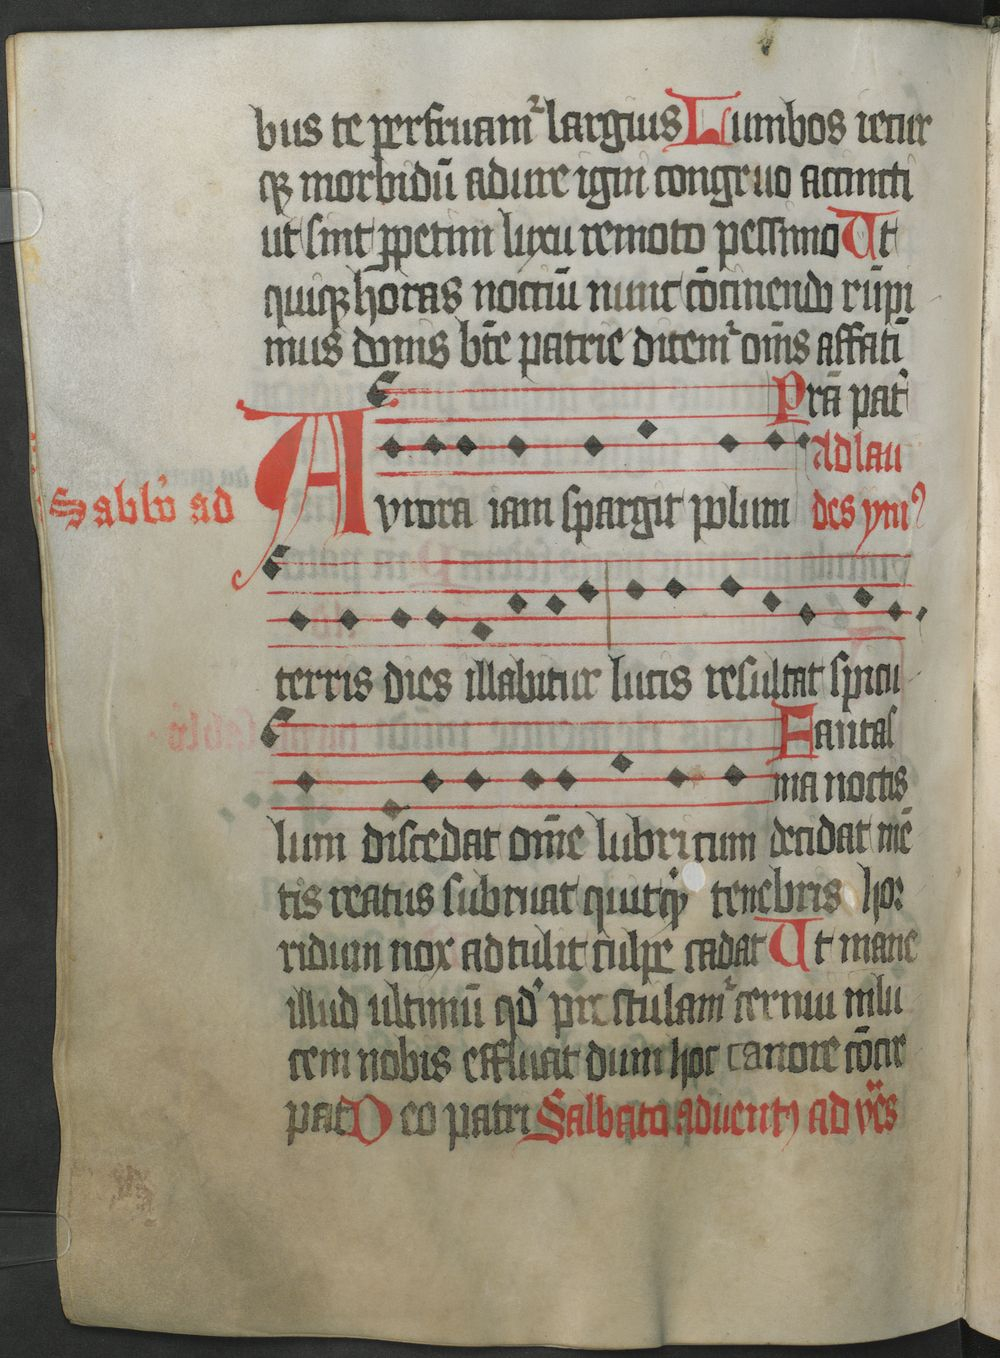 bus te perfruam᷑ largius Lumbos iecur
qꝫ morbidū adure igni congruo accincti
ut sint ꝑpetim luxu remoto pessimo Ut
quiqꝫ horas noctiū nunc cōcinendo rūpi
mus donis bt̄e patrie ditem᷑ om̄s affati᷑
Prā pat᷑
Ad lau
Sabb̄o ad
Aurora iam spargit polum
des ymꝰ
terris dies illabitur lucis resultat spicu
Fantas
ma noctis
lum discedat om̄e lubricum decidat mē
tis reatus subruat quicqꝫ tenebris hor
ridum nox adtulit culpe cadat Ut mane
illud ultimū qd᷑ prestulam᷑ cernui in lu
cem nobis effluat dum hoc canore cōcre
pat Deo patri Sabbato aduentꝰ ad v̄es